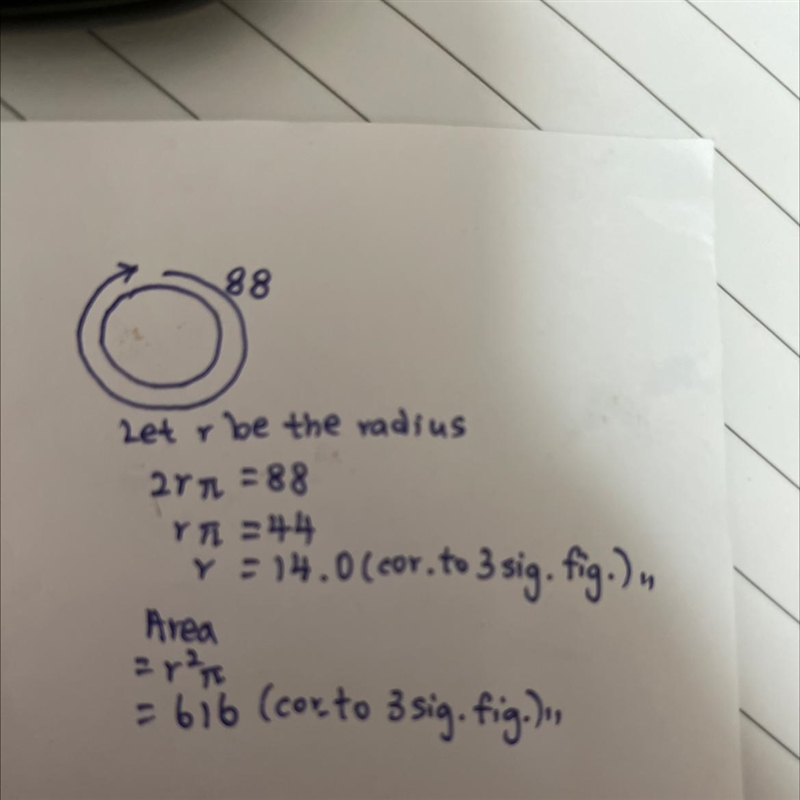 88
Let r be the radius
2rπ = 88
rπ = 44
r = 14.0 (cor. to 3 sig. fig.) "
Area
= r²π
= 616 (cor. to 3 sig. fig.) "